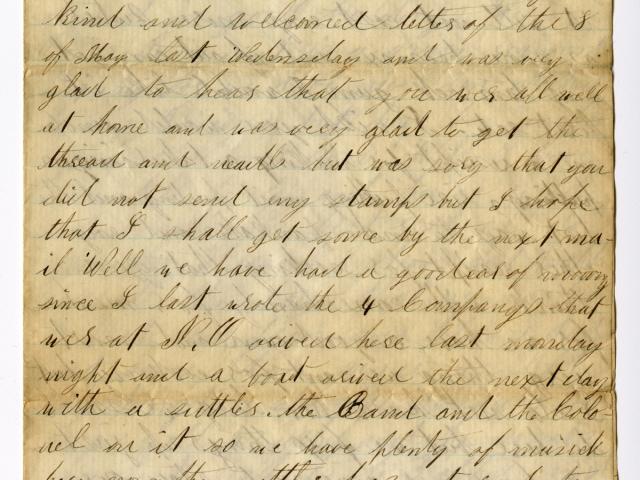 kind and welcomed letter of the 8
of May last Wedensday and was very
glad to hear that you wer all well
at home and was very glad to get the
thread and neadl but was sory that you
did not send eny stamps but I hope
that I shall get some by the next ma-
il Well we have had a good eal of moovng
since I last wrote the 4 Companys that
wer at N.O arived here last monday
night and a boat arived the next day
with a suttler. the Band and the Colo-
nel on it so we have plenty of musick